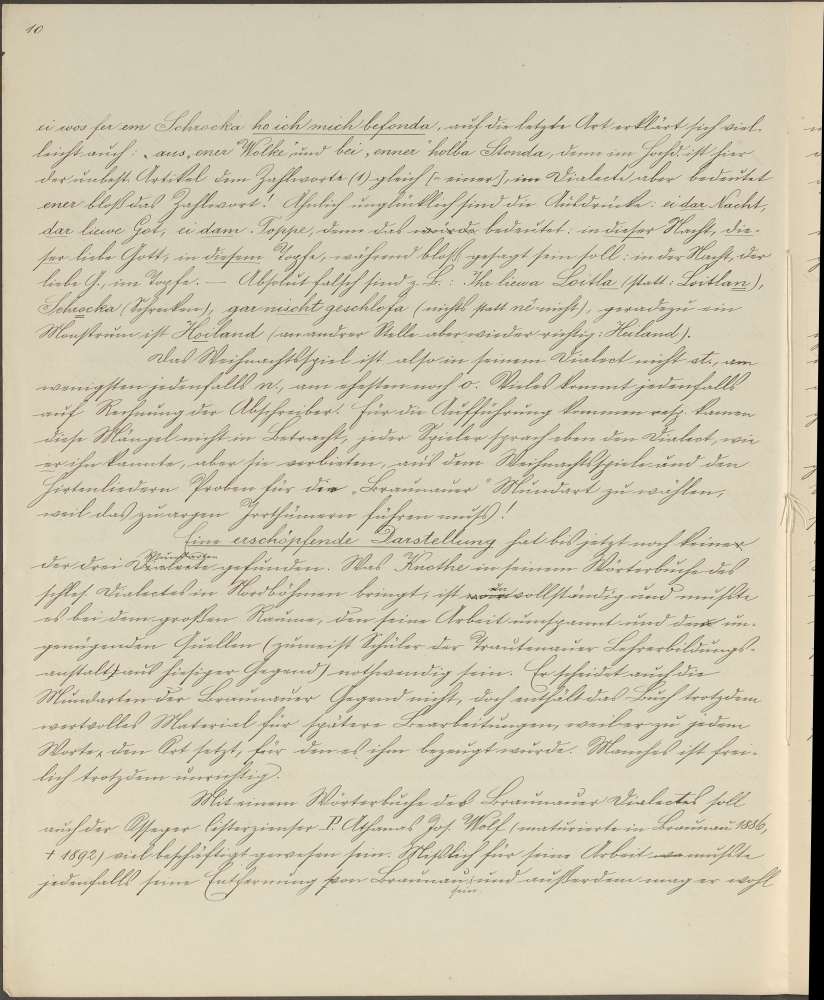 10
ei wos fer em Schrocka ho ich mich befonda, auf die letzte Art erklärt sich viel-
leicht auch: „aus „ener" Wolke" und bei „enner" holba Stonda, denn im Hochd. ist hier
der unbest. Artikel dem Zahlworte (1) gleich [= einer], im Dialecte aber bedeutet
ener bloß das Zahlwort! Ähnlich unglücklich sind die Ausdrücke: ei dar Nacht,
dar liewe Got, ei dam Toppe, denn das würde bedeutet: in dieser Nacht, die-
ser liebe Gott, in diesem Topfe, während bloß gesagt sein soll: in der Nacht, der
liebe G., im Topfe. — Absolut falsch sind z. B.: Ihr liewa Loitla (statt: Loitlan),
Schrocka (Schrecken), gar nischt geschlofa (nichts statt ne nicht), geradezu ein
Monstrum ist Hoiland (an andrer Stelle aber wieder richtig: Heiland).
Das Weihnachtsspiel ist also in seinem Dialect nicht st., am
wenigsten jedenfalls n., am ehesten noch o. Vieles kommt jedenfalls
auf Rechnung der Abschreiber. Für die Aufführung kommen resp. kamen
diese Mängel nicht in Betracht, jeder Spieler sprach eben den Dialect, wie
er ihn kannte, aber sie verbieten, aus dem Weihnachtsspiele und den
Hirtenliedern Proben für die „Braunauer" Mundart zu wählen,
weil das zu argen Irrthümern führen muß!
Eine erschöpfende Darstellung hat bis jetzt noch keiner
der drei Dialecte Mundarten gefunden. Was Knothe in seinem Wörterbuche des
schles. Dialectes in Nordböhmen bringt, ist unvollständig und mußte
es bei dem großen Raume, den seine Arbeit umspannt und den un-
genügenden Quellen (zumeist Schüler der Trautenauer Lehrerbildungs-
anstalt aus hiesiger Gegend) nothwendig sein. Er scheidet auch die
Mundarten der Braunauer Gegend nicht, doch enthält das Buch trotzdem
wertvolles Material für spätere Bearbeitungen, weil er zu jedem
Worte den Ort setzt, für den es ihm bezeugt wurde. Manches ist frei-
lich trotzdem unrichtig.
Mit einem Wörterbuche des Braunauer Dialectes soll
auch der Ossegger Cisterzienser P. Athanas Jos. Wolf (maturierte in Braunau 1886,
† 1892) viel beschäftigt gewesen sein. Mißlich für seine Arbeit mußte
jedenfalls seine Entfernung von Braunau sein und außerdem mag er wohl